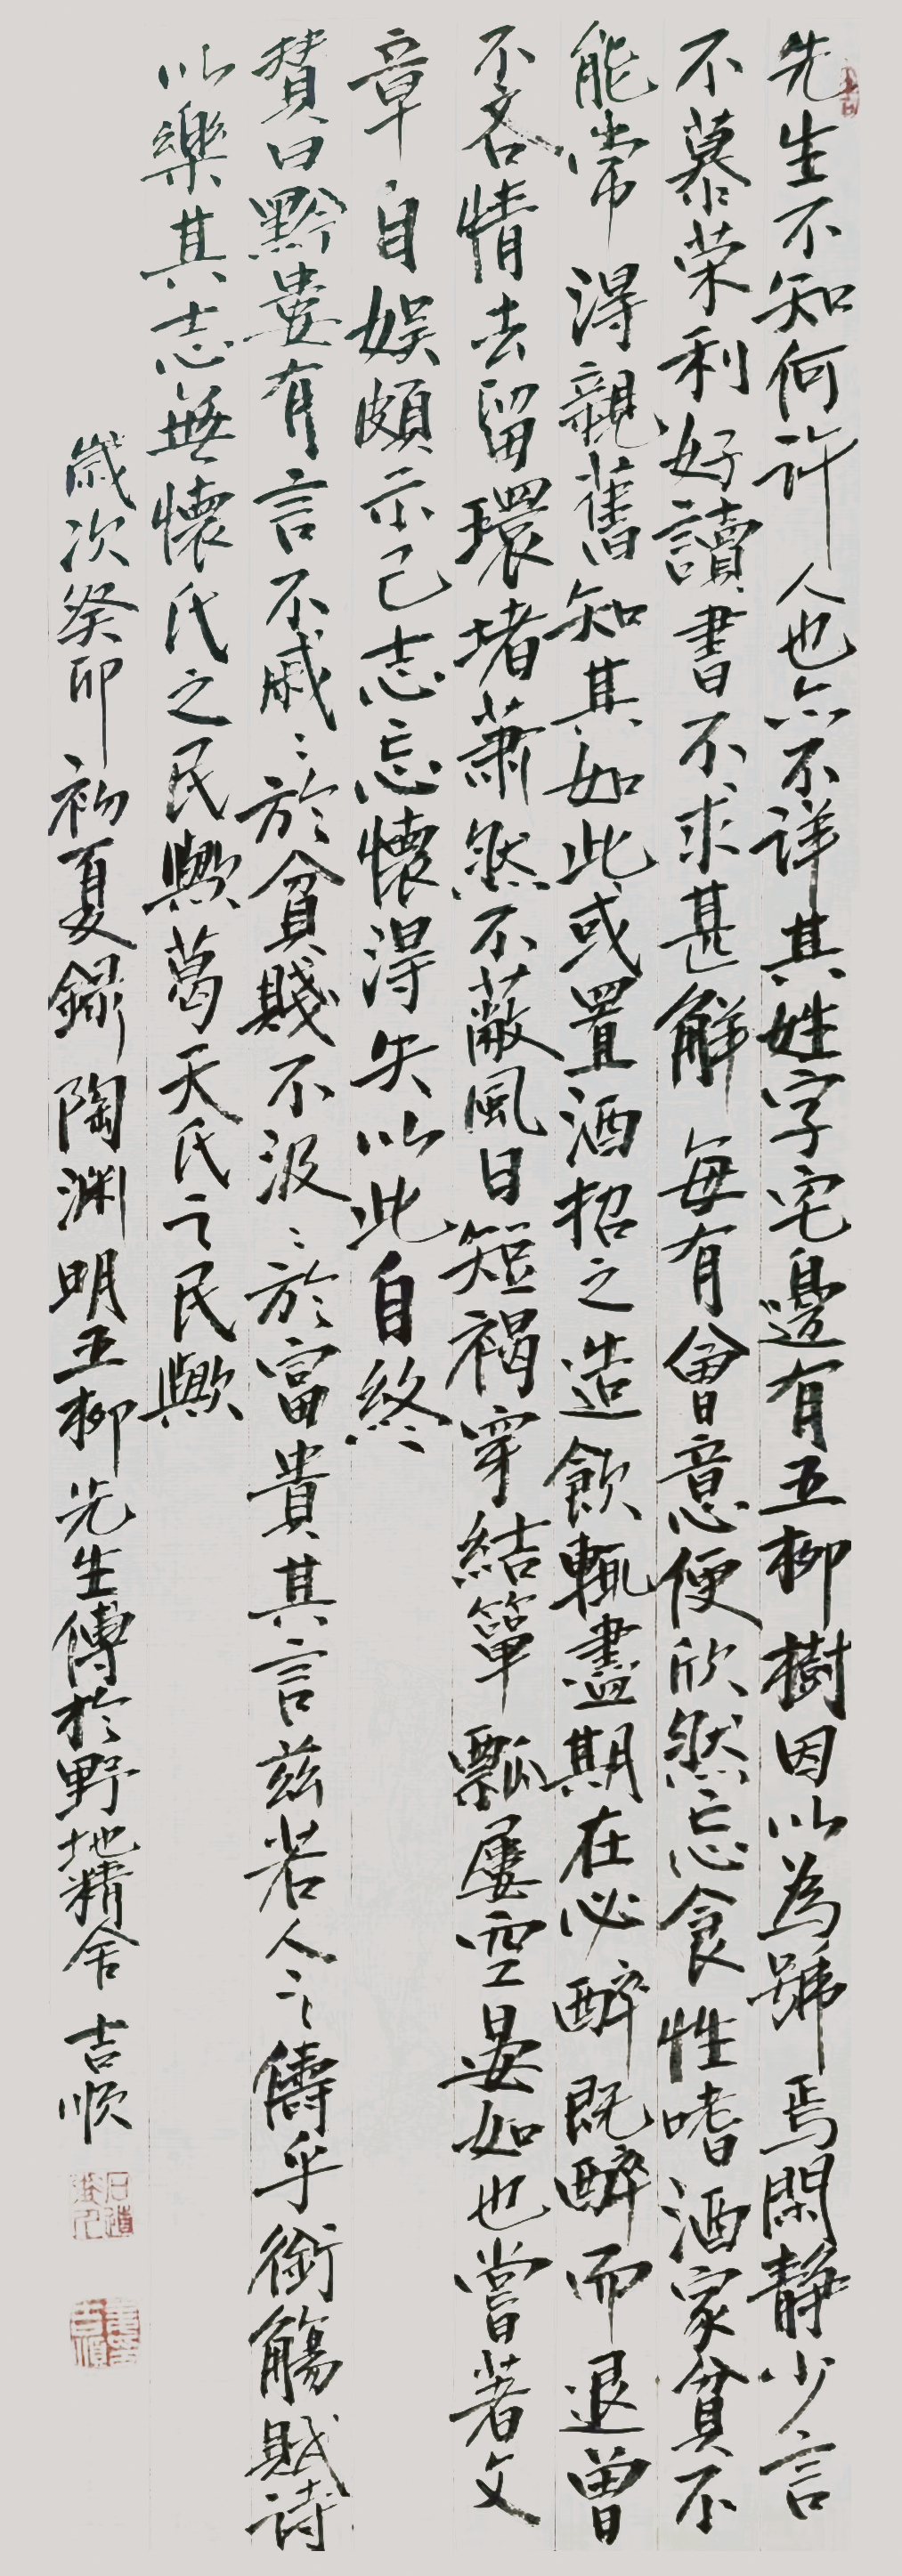 先生不知何許人也亦不详其姓字宅邊有五柳樹因以為號焉閑静少言
不慕荣利好讀書不求甚解每有會意便欣然忘食性嗜酒家貧不
能常得親舊知其如此或置酒招之造飲輒盡期在必醉既醉而退曽
不吝情去留環堵蕭然不蔽風日短褐穿結簞瓢屢空晏如也嘗著文
章自娱頗示己志忘懷得失以此自終
賛曰黔婁有言不戚〻於貧賤不汲〻於富貴其言兹若人之儔乎銜觴賦诗
以樂其志無懷氏之民歟葛天氏之民歟
歲次癸卯初夏録陶渊明五柳先生傳於野地精舍吉順